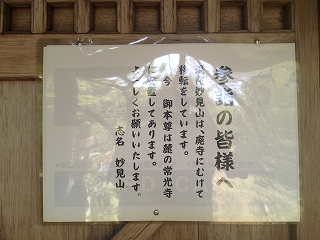 参詣の皆様へ
現在妙見山は、廃寺にむけて
移転をしています。
今 御本尊は麓の常光寺
に安置してあります。
よろしくお願いいたします。
志名 妙見山